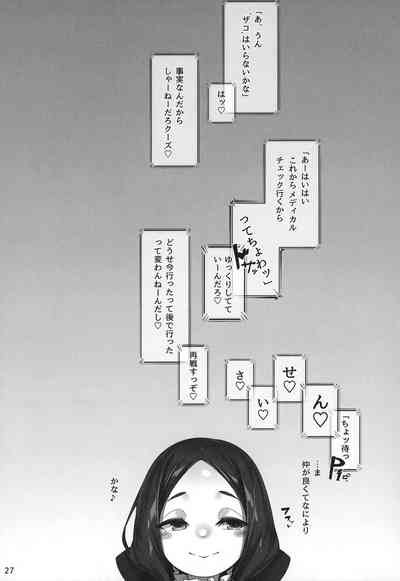 「あ、うん
"ザコ"はいらないかな」
はッ♡
事実なんだから
しゃーねーだろクーズ♡
「あーはいはい
これからメディカル
チェック行くから
ってちょわッ」
ドサッ
ゆっくりしてて
いーんだろ♡
どうせ今行ったって後で行った
って変わんねーんだし♡
再戦すっぞ♡
さ♡
い♡
せ♡
ん♡
「ちょッ待っ
…ま
仲が良くてなにより
かな♪
27